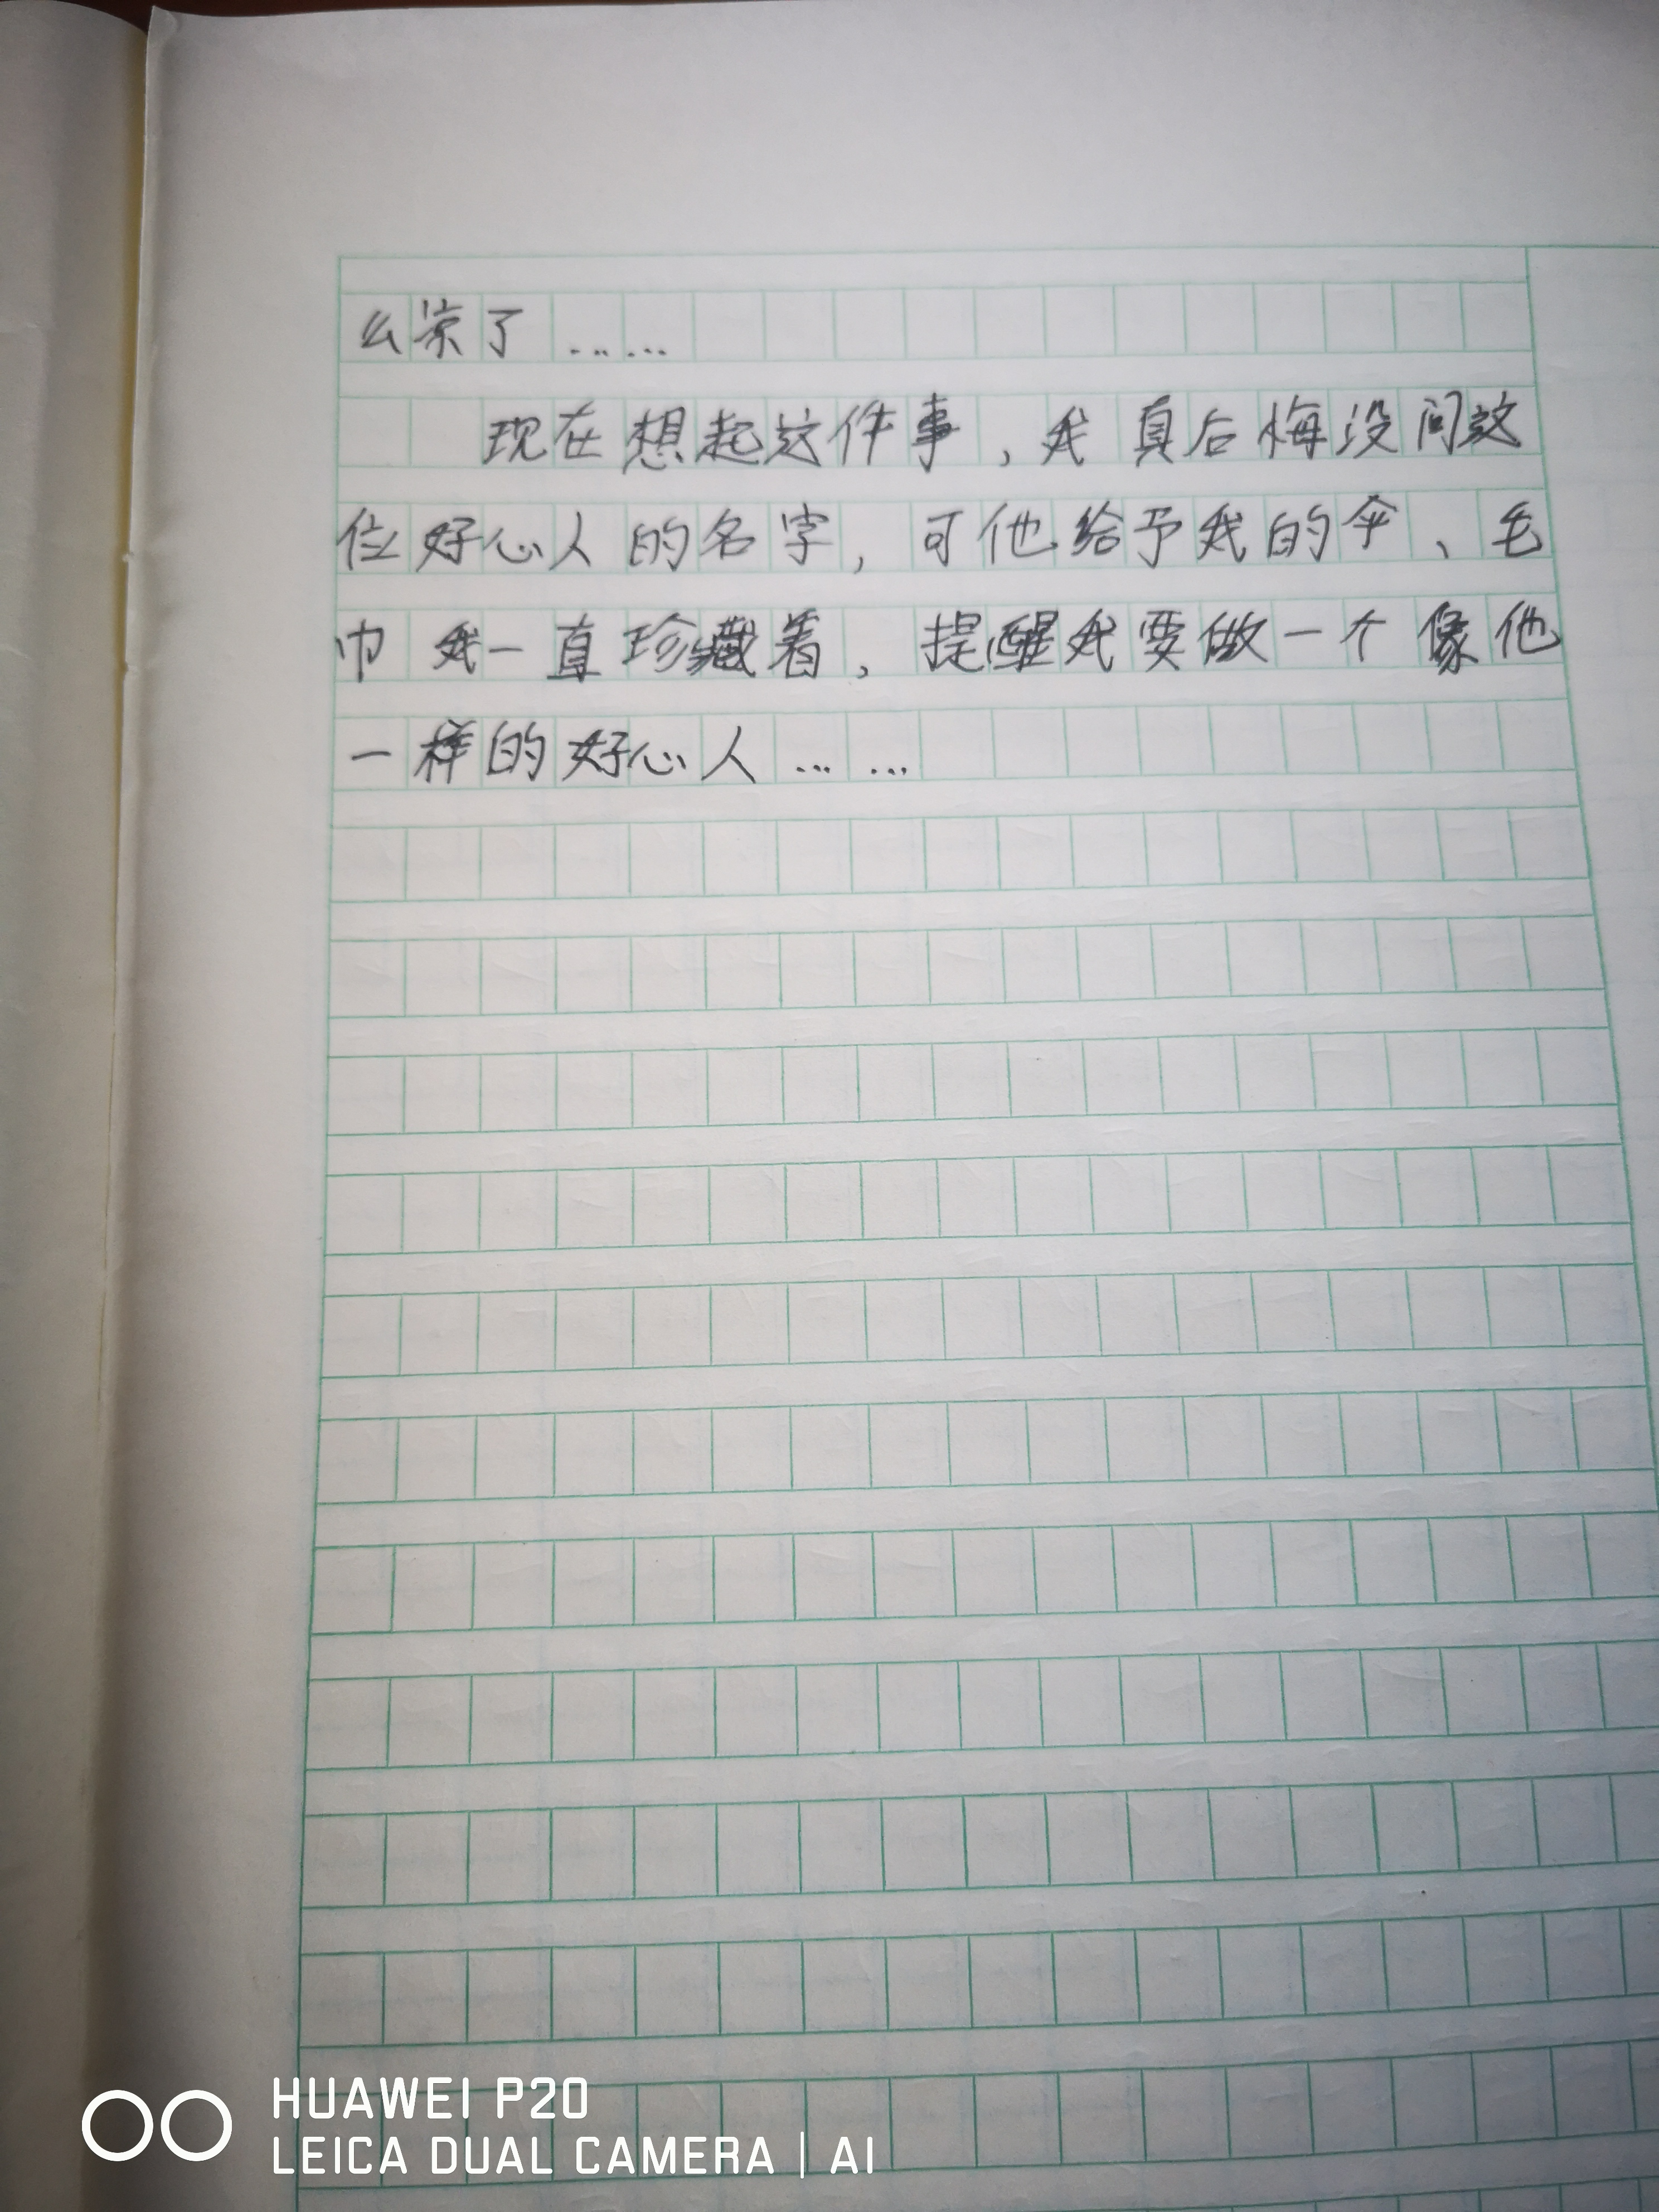 么凉了……
现在想起这件事，我真后悔没问这
位好心人的名字，可他给予我的伞、毛
巾我一直珍藏着，提醒我要做一个像他
一样的好心人……
HUAWEI P20
LEICA DUAL CAMERA | AI